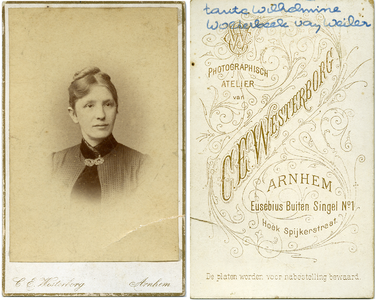 C. E. Westerborg Arnhem
tante Wilhelmine
PHOTOGRAPHISCH
ATELIER
van
C.E. WESTERBORG
ARNHEM
Eusebius Buiten Singel No 1
Hoek Spijkerstraat
De platen worden voor nabestelling bewaard.